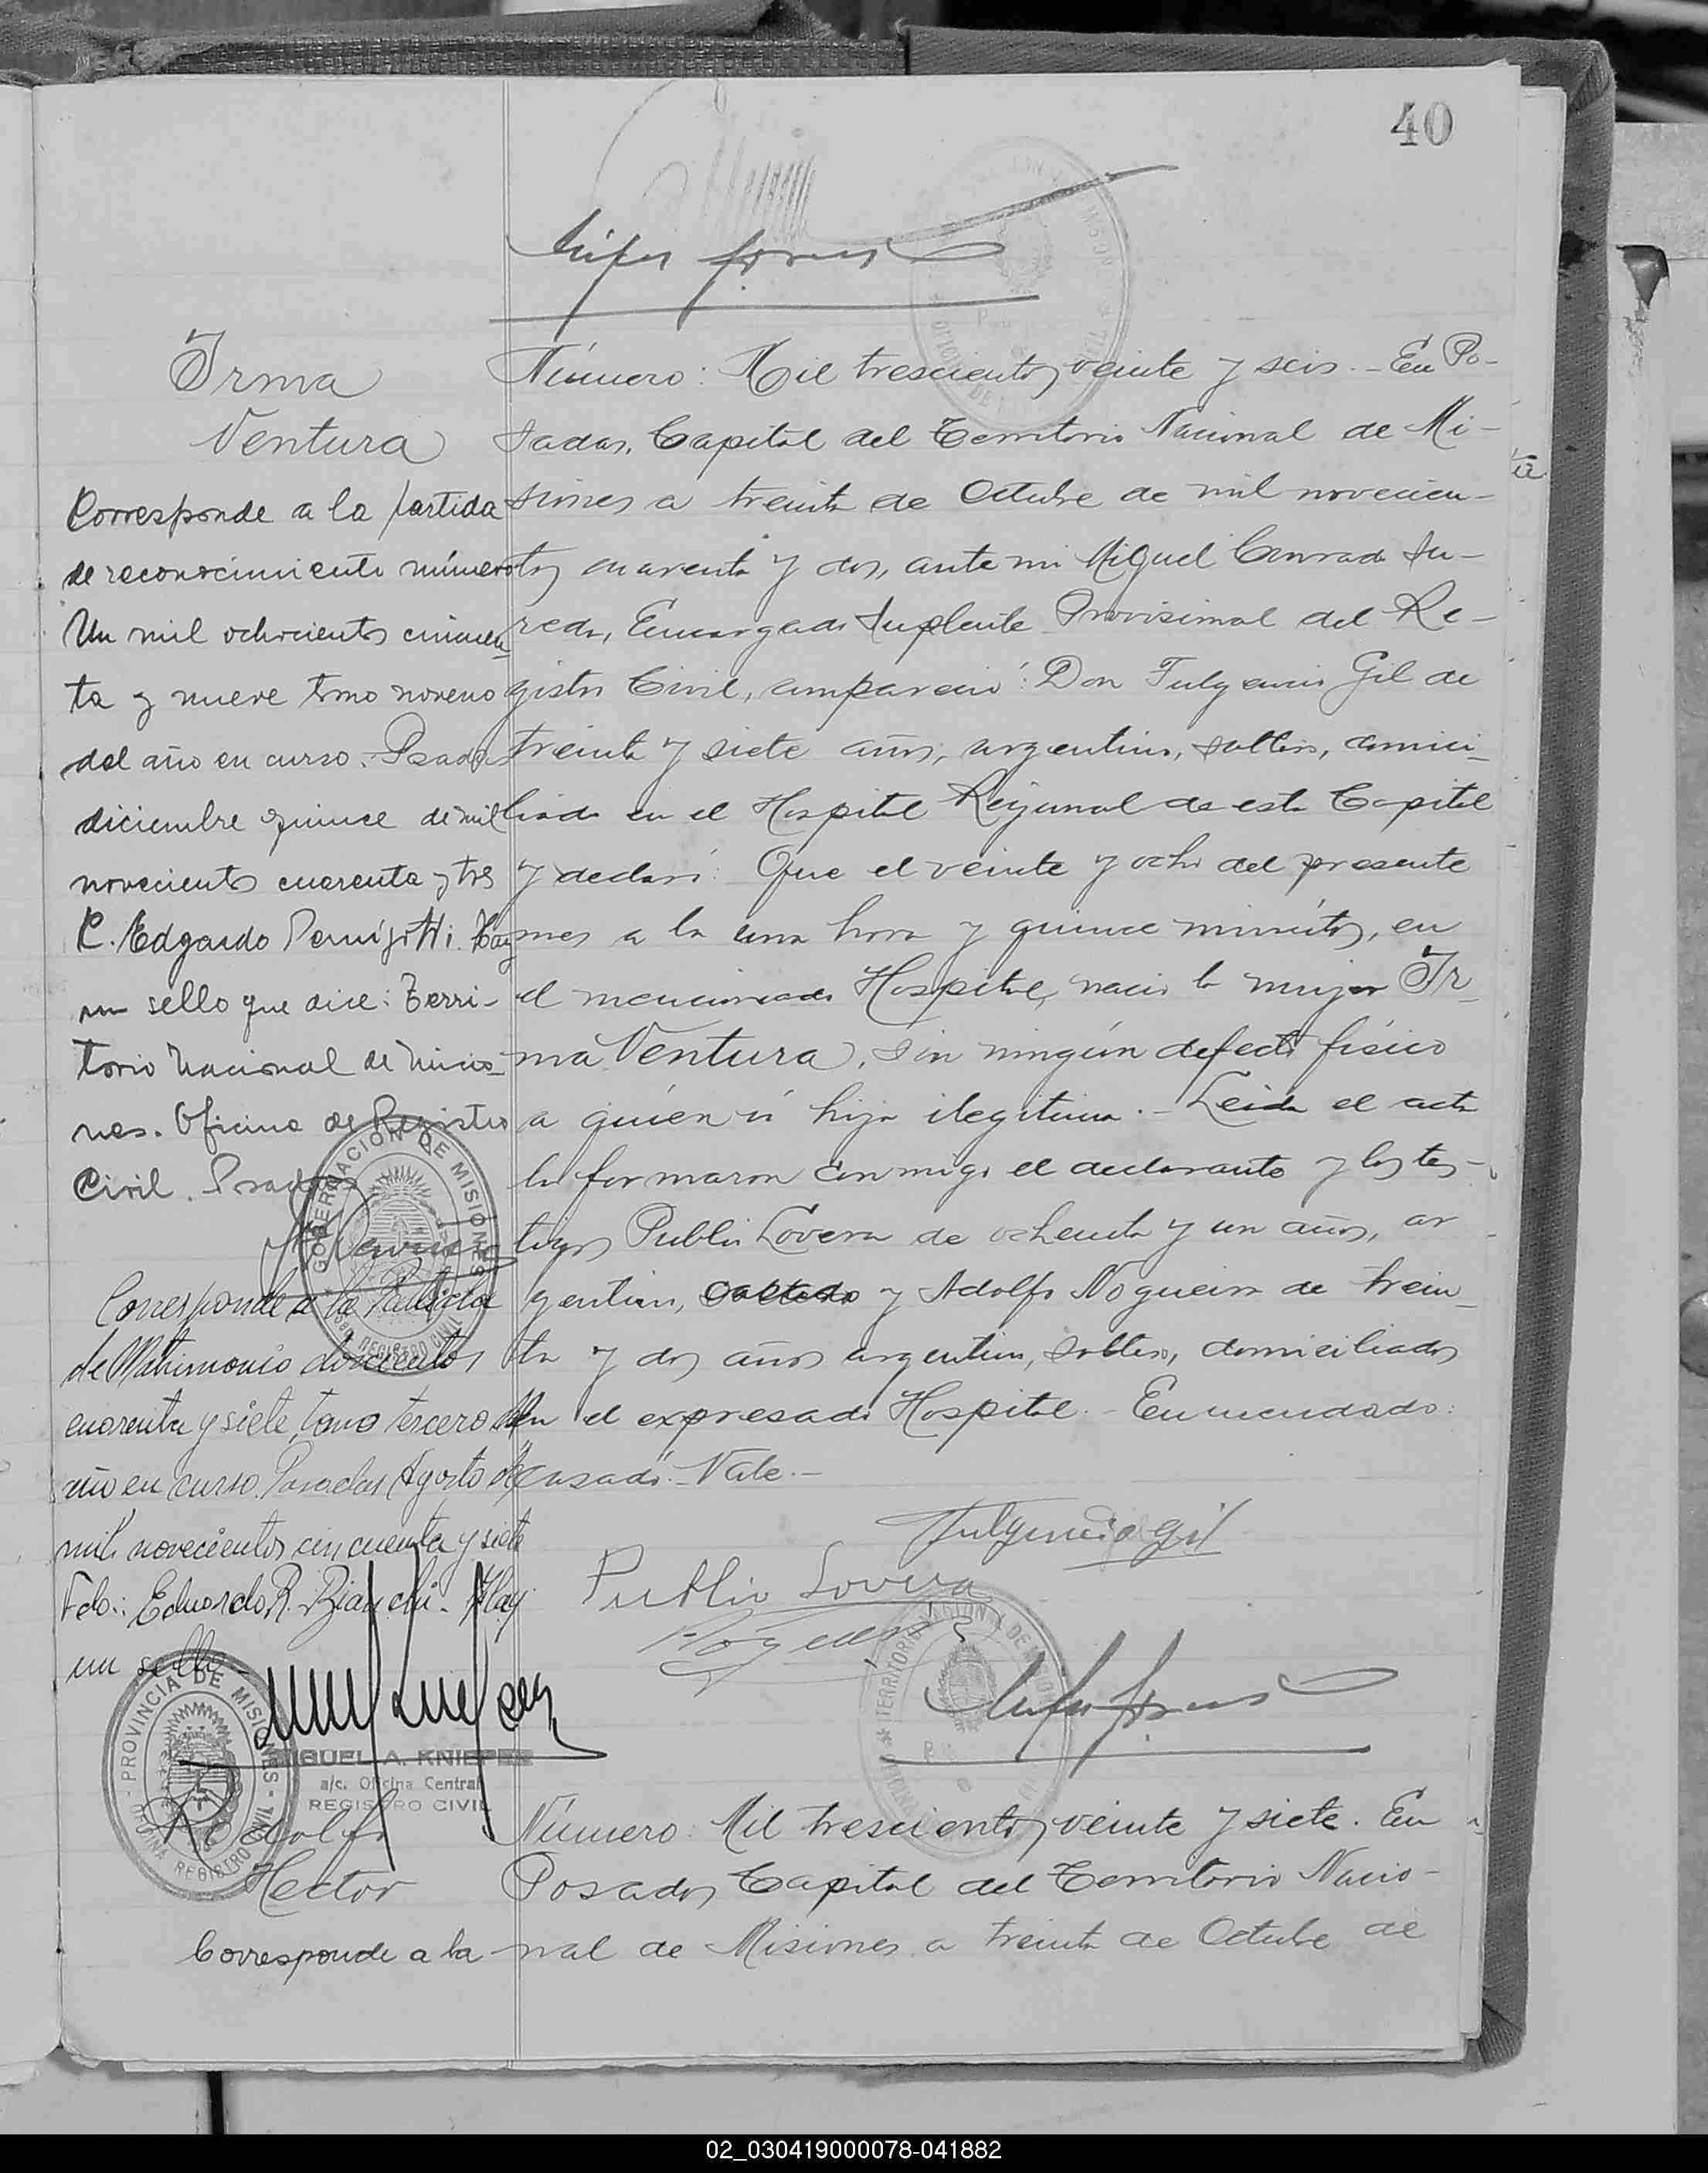 40
Irma
Ventura
Corresponde a la partida
de reconocimiento número
Un mil ochocientos cincuen
ta y nueve tomo noveno
del año en curso. Posadas
diciembre quince de mil
novecientos cuarenta y tres
Edgardo Hay
un sello que dice: Terri-
torio Nacional de Misio-
nes. Oficina de Registro
Civil. Posadas
GOBERNACION DE MISIONES
REGISTRO CIVIL
Corresponde a la Partida
de Matrimonio doscientos
cuarenta y siete, tomo tercero del
año en curso. Posadas Agosto de
mil novecientos cincuenta y siete
Fdo.: Eduardo R. Bianchi. Hay
un sello-
PROVINCIA DE MISIONES
OFICINA REGISTRO CIVIL
MIGUEL A. KNIEPER
a/c. Oficina Central
REGISTRO CIVIL
Número: Mil trescientos veinte y seis.- En Po-
sadas, Capital del Territorio Nacional de Mi-
siones a treinta de Octubre de mil novecien-
tos cuarenta y dos, ante mi Miguel Conrado Ju-
redo, Encargado Suplente Provisional del Re-
gistro Civil, compareció: Don Fulgencio Gil de
treinta y siete años, argentino, soltero, domici-
liado en el Hospital Regional de esta Capital
y declaró: Que el veinte y ocho del presente
mes a la una hora y quince minutos, en
el mencionado Hospital, nació la mujer Ir-
ma Ventura, sin ningún defecto físico
a quién es hija ilegitima.- Leida el acta
la formaron conmigo el declarante y los tes-
tigos Publio Lovera de ochenta y un años, ar
gentino, casado y Adolfo Nogueira de trein-
ta y dos años argentino, soltero, domiciliados
en el expresado Hospital.- Enmendado:
"casado". Vale.-
Fulgencio Gil
Publio Lovera
Rodolfo
Hector
Corresponde a la
Número: Mil trescientos veinte y siete. En
Posadas, Capital del Territorio Nacio-
nal de Misiones a treinta de Octubre de
02_030419000078-041882